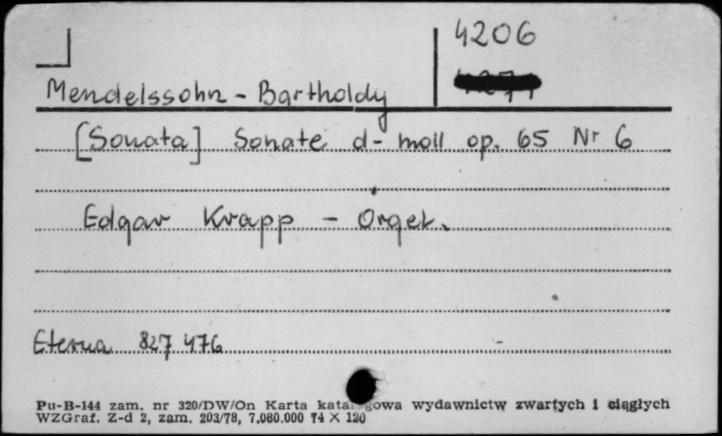 4206
Mendelssohn - Bartholdy
[Sonata] Sonate d-moll op. 65 Nr 6
Edgar Krapp - Orgel.
Eterna 827 476
Pu-B-144 zam. nr 320/DW/On Karta katalogowa wydawnictw zwartych i ciągłych
WZGraf. Z-d 2, zam. 203/78, 7.080.000 74 X 120